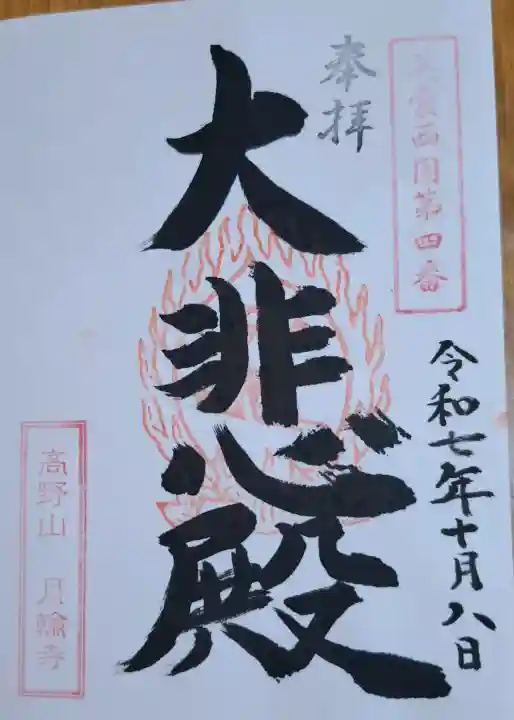 西国第四番
奉拝
大悲殿
令和七年十月八日
高野山 月輪寺